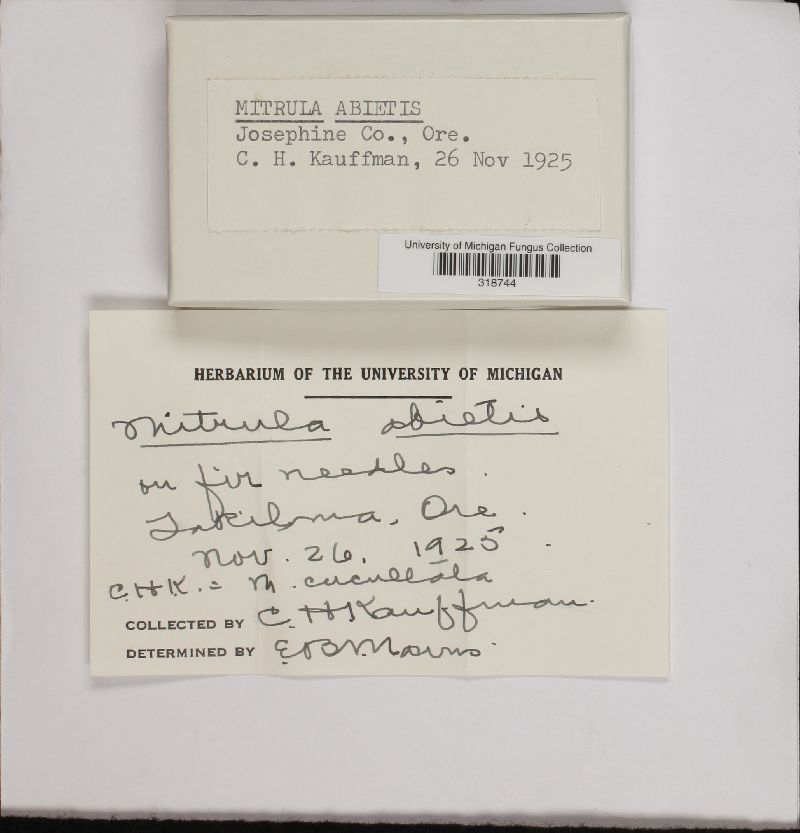 MITRULA ABIETIS
Josephine Co., Ore.
C. H. Kauffman, 26 Nov 1925
University of Michigan Fungus Collection
318744
HERBARIUM OF THE UNIVERSITY OF MICHIGAN
Mitrula abietis
on fir needles.
Takilma, Ore.
Nov. 26, 1925 -
C.H.K. = M. cucullata
COLLECTED BY C. H Kauffman.
DETERMINED BY E B Mains